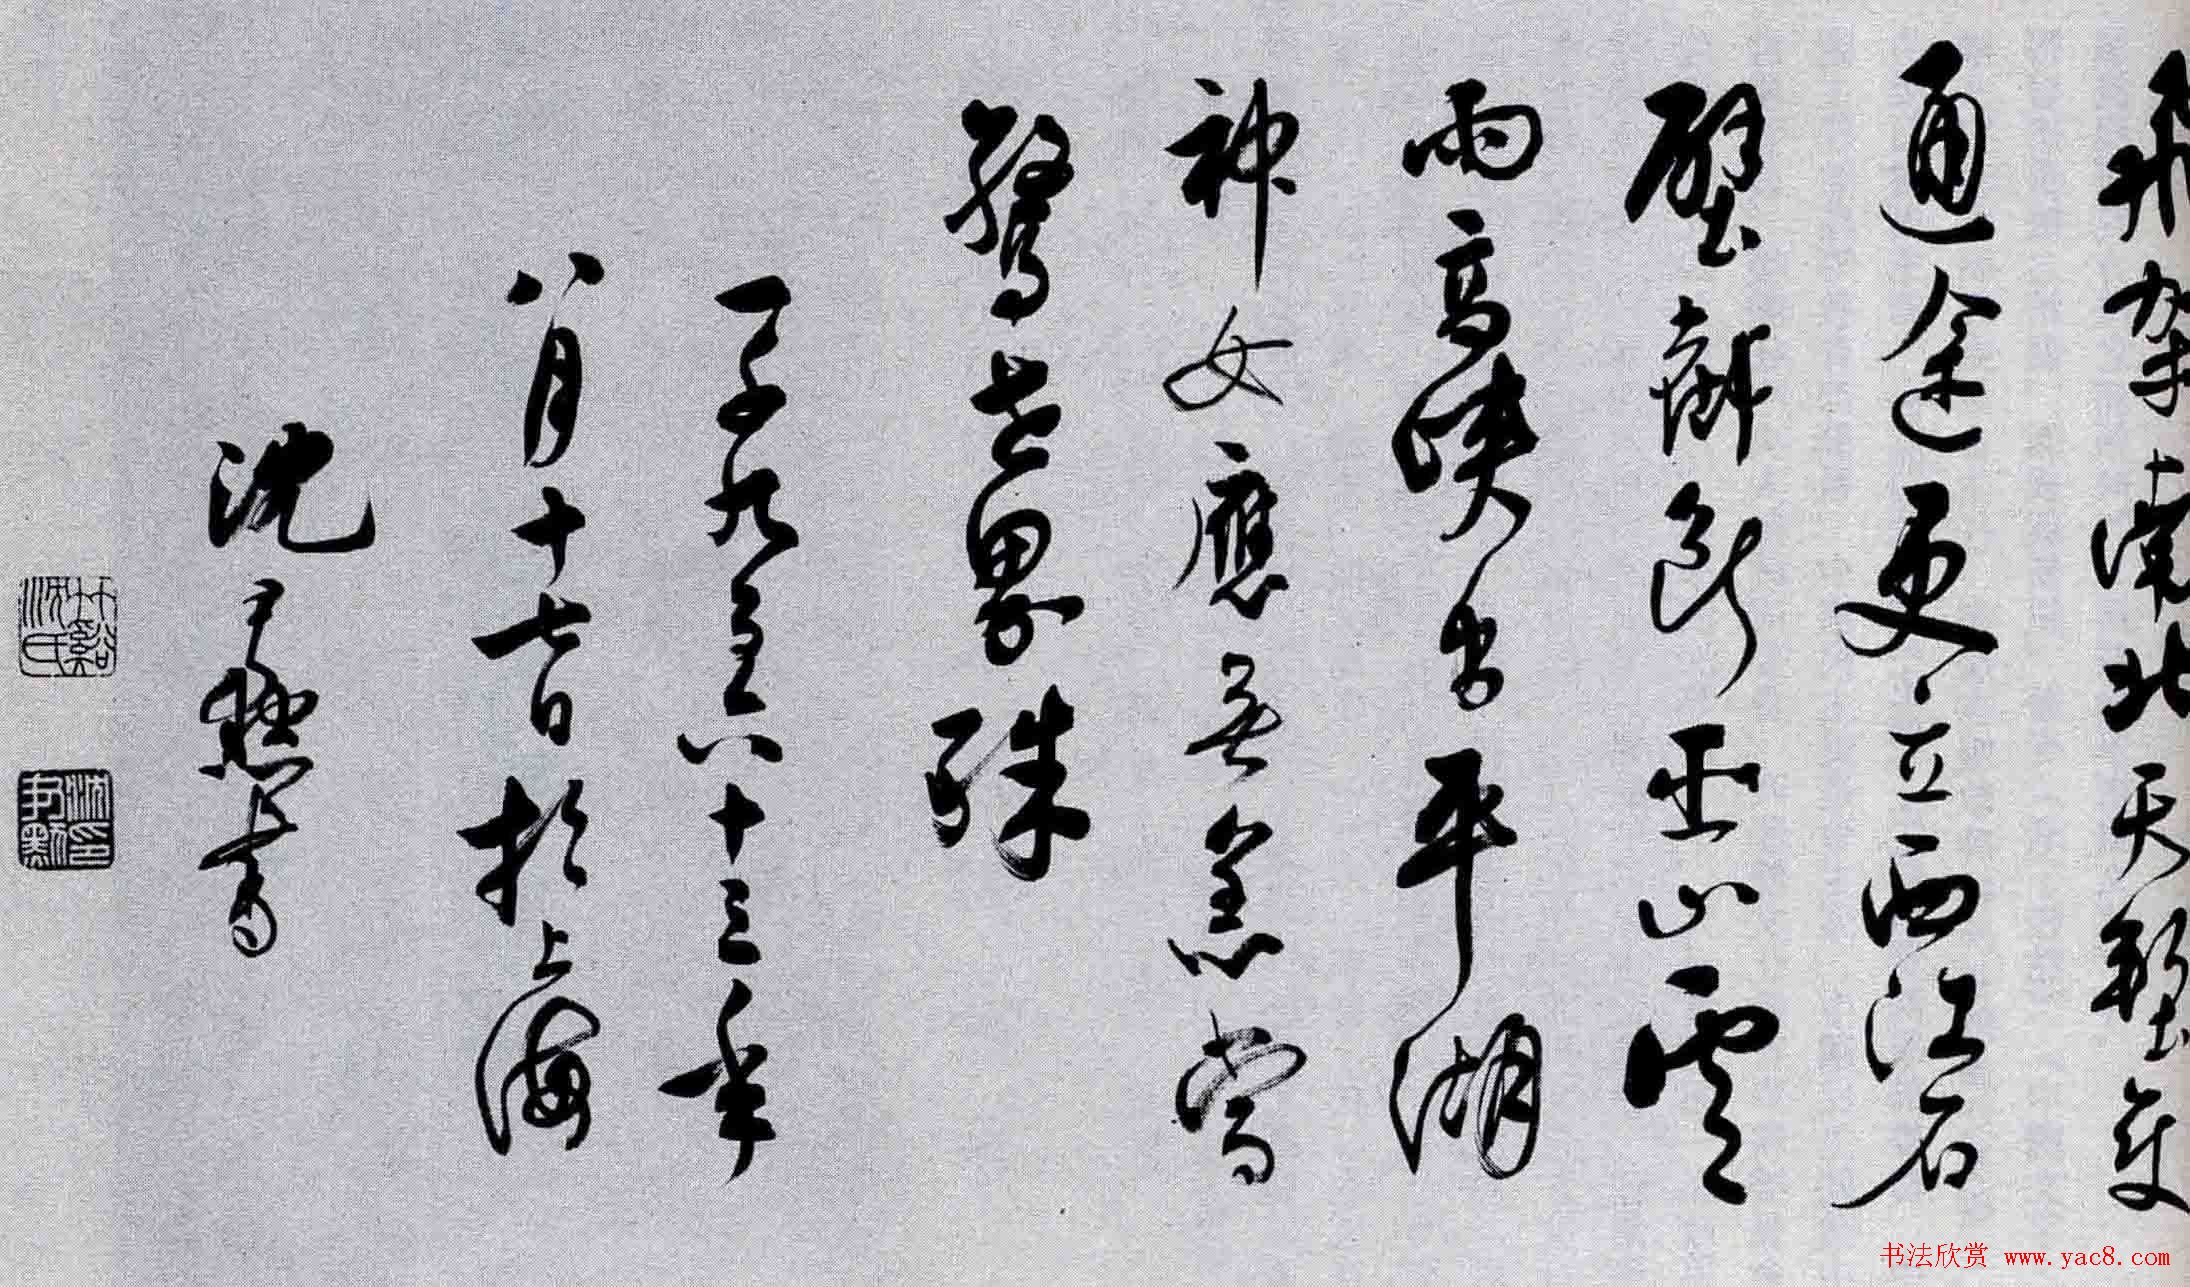 飛架南北天塹變
通途更立西江石
壁截斷巫山雲
雨高峽出平湖
神女應無恙當
驚世界殊
一千九百六十三年
八月十七日於上海
沈尹默書
竹谿沈氏
沈印尹默
书法欣赏 www.yac8.com